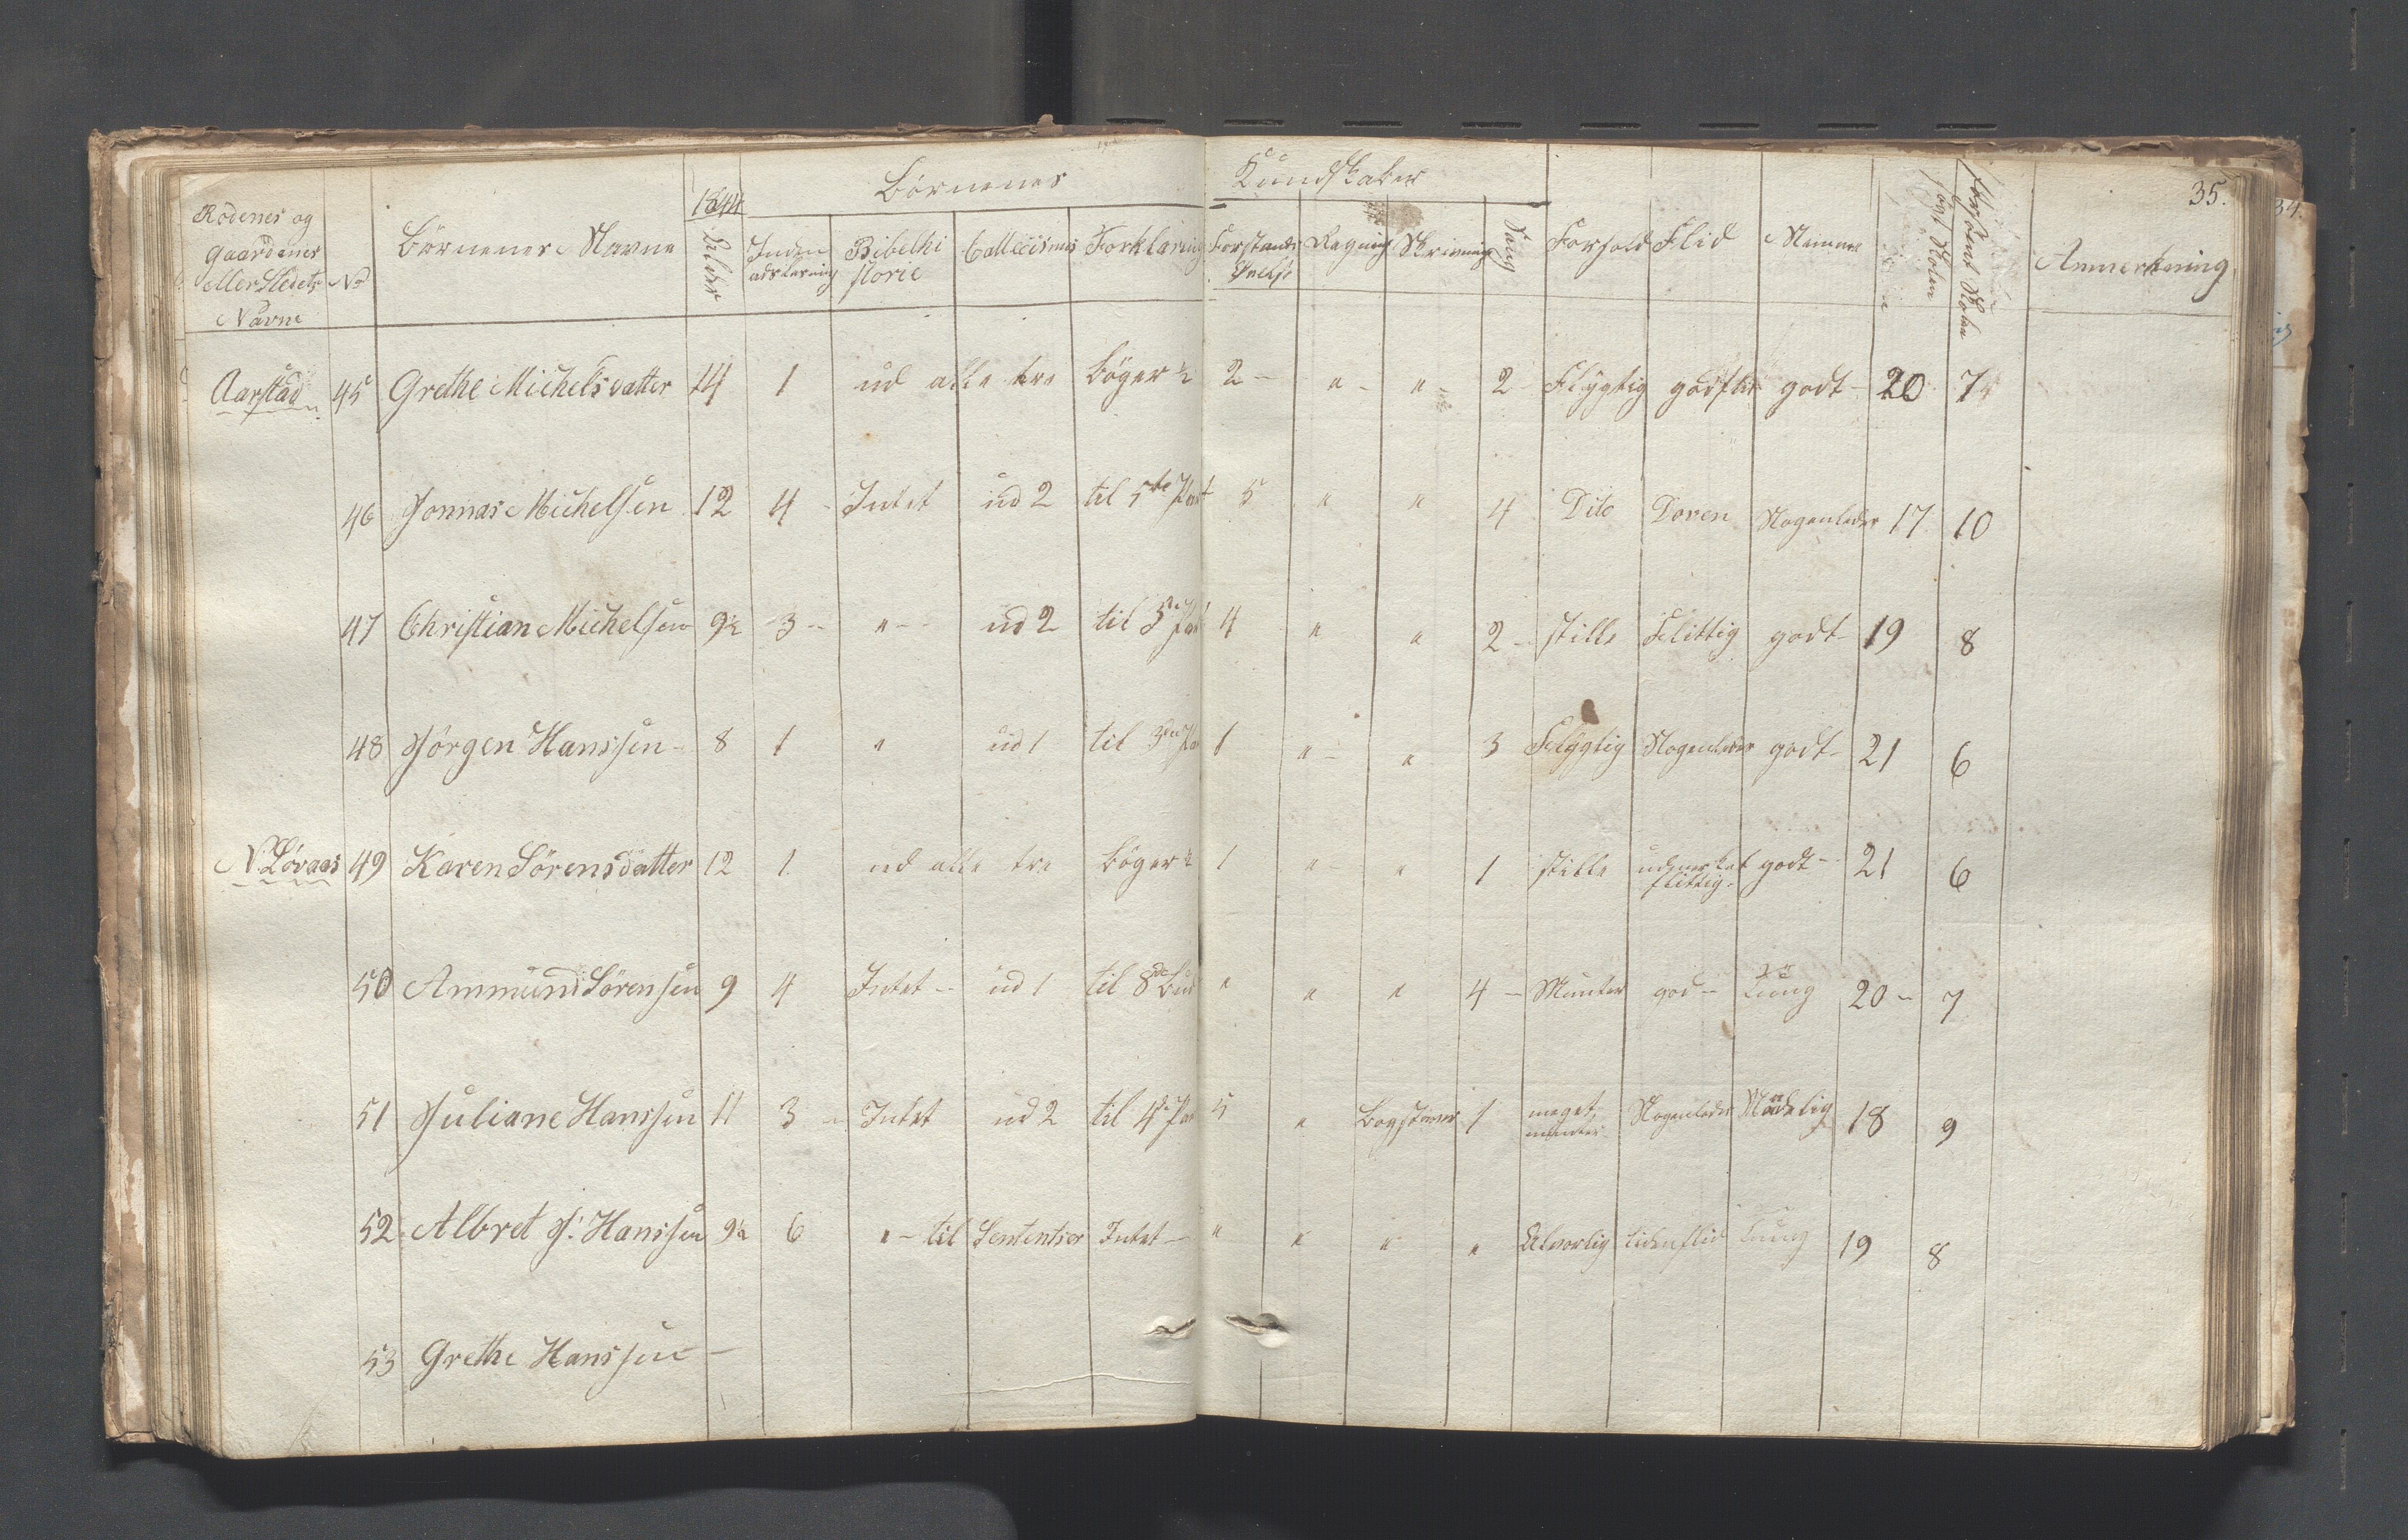 35.
1844
Børnenes Kundskaber
Rodenes og Gaardenes eller Stedets Navne No Børnenes Navne Alder Inden adslæsning Bibelhi storie Cattecismus Forklaring Forstands Øvelse Regning Skrivning Sang Forhold Flid Nemme søgt Skolen forsømt Skolen Anmerkning
Aarstad 45 Grethe Michelsdatter 14 1 ud alle tre Bøger 2 „ „ 2 Flygtig god flid godt 20 7
46 Jonnas Michelsen 12 4 Intet ud 2 til 5te Part 5 „ „ 4 Dito Doven Nogenledes 17 10
47 Christian Michelsen 9½ 3 „ ud 2 til 5te Part 4 „ „ 2 stille Flittig godt 19 8
48 Jørgen Hanssen 8 1 „ ud 1 til 3die 1 „ „ 3 Flygtig Nogenledes godt 21 6
N. Løvaas 49 Karen Sørensdatter 12 1 ud alle tre Bøger 1 „ „ 1 stille udmerket flittig godt 21 6
50 Ammund Sørensen 9 4 Intet ud 1 til 8de Bud „ „ „ 4 Munter god Tung 20 7
51 Juliane Hanssen 11 3 Intet ud 2 til 4de 5 „ Bogstaver 1 meget munter Nogenledes Maadelig 18 9
52 Albret J. Hanssen 9½ 6 „ til Sententser Intet „ „ „ „ Alvorlig liden flid Tung 19 8
53 Grethe Hanssen —